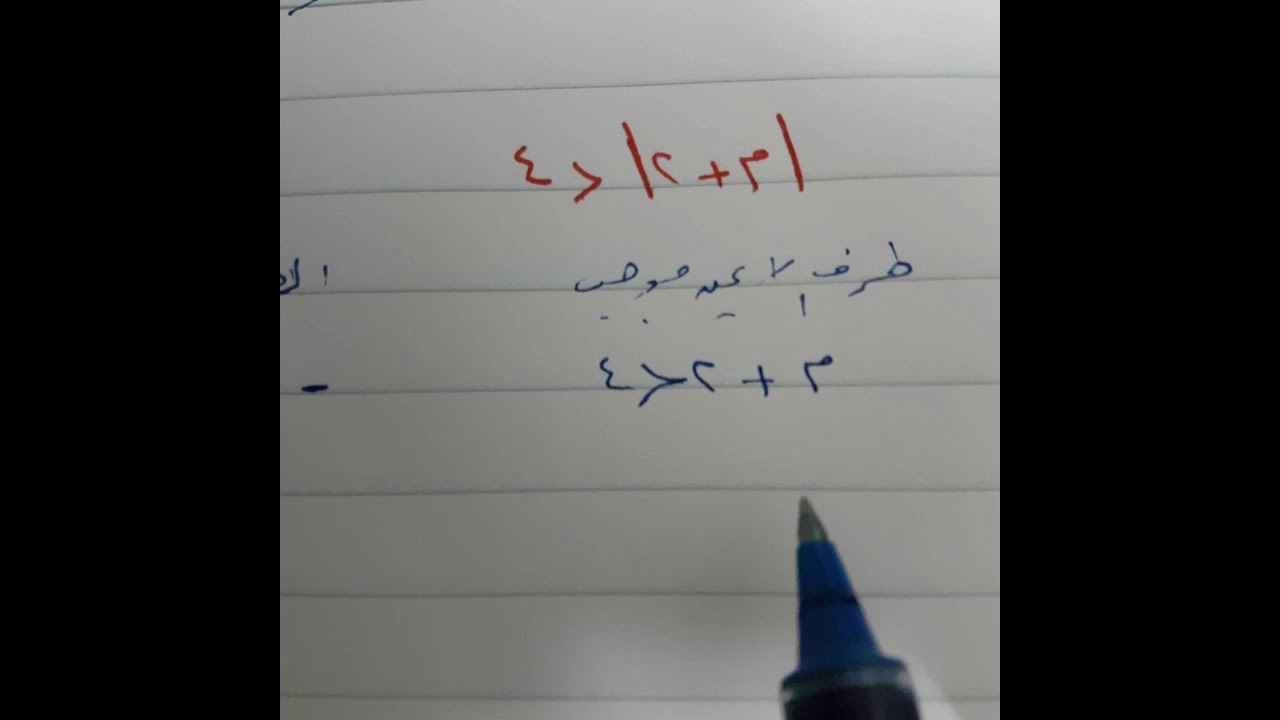 |م + ٢| < ٤
طرف الايمن موجب
م + ٢ < ٤ -